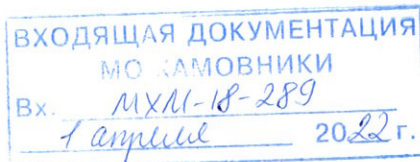 ВХОДЯЩАЯ ДОКУМЕНТАЦИЯ
МО ХАМОВНИКИ
Вх. МХМ-18-289
1 апреля 2022 г.